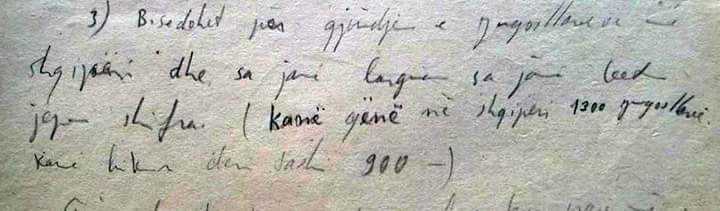 3) Bisedohet për gjëndjen e jugosllavëve në
shqipëri dhe sa janë larguar sa janë
jepen shifra. (kanë qënë në shqipëri 1300 jugosllavë.
Kanë ikur deri tashi 900 –)